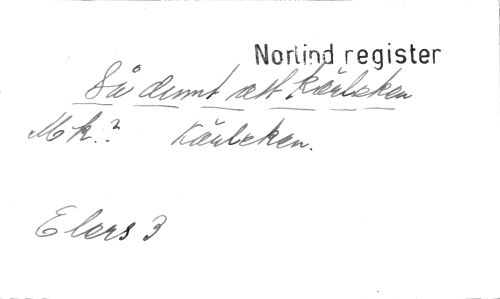 Norlind register
Så dumt att kärleken
Mk.? Kärleken.
Elers 3